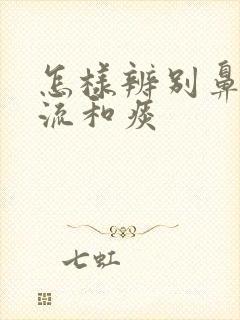 怎样辨别鼻
流和痰
七虹